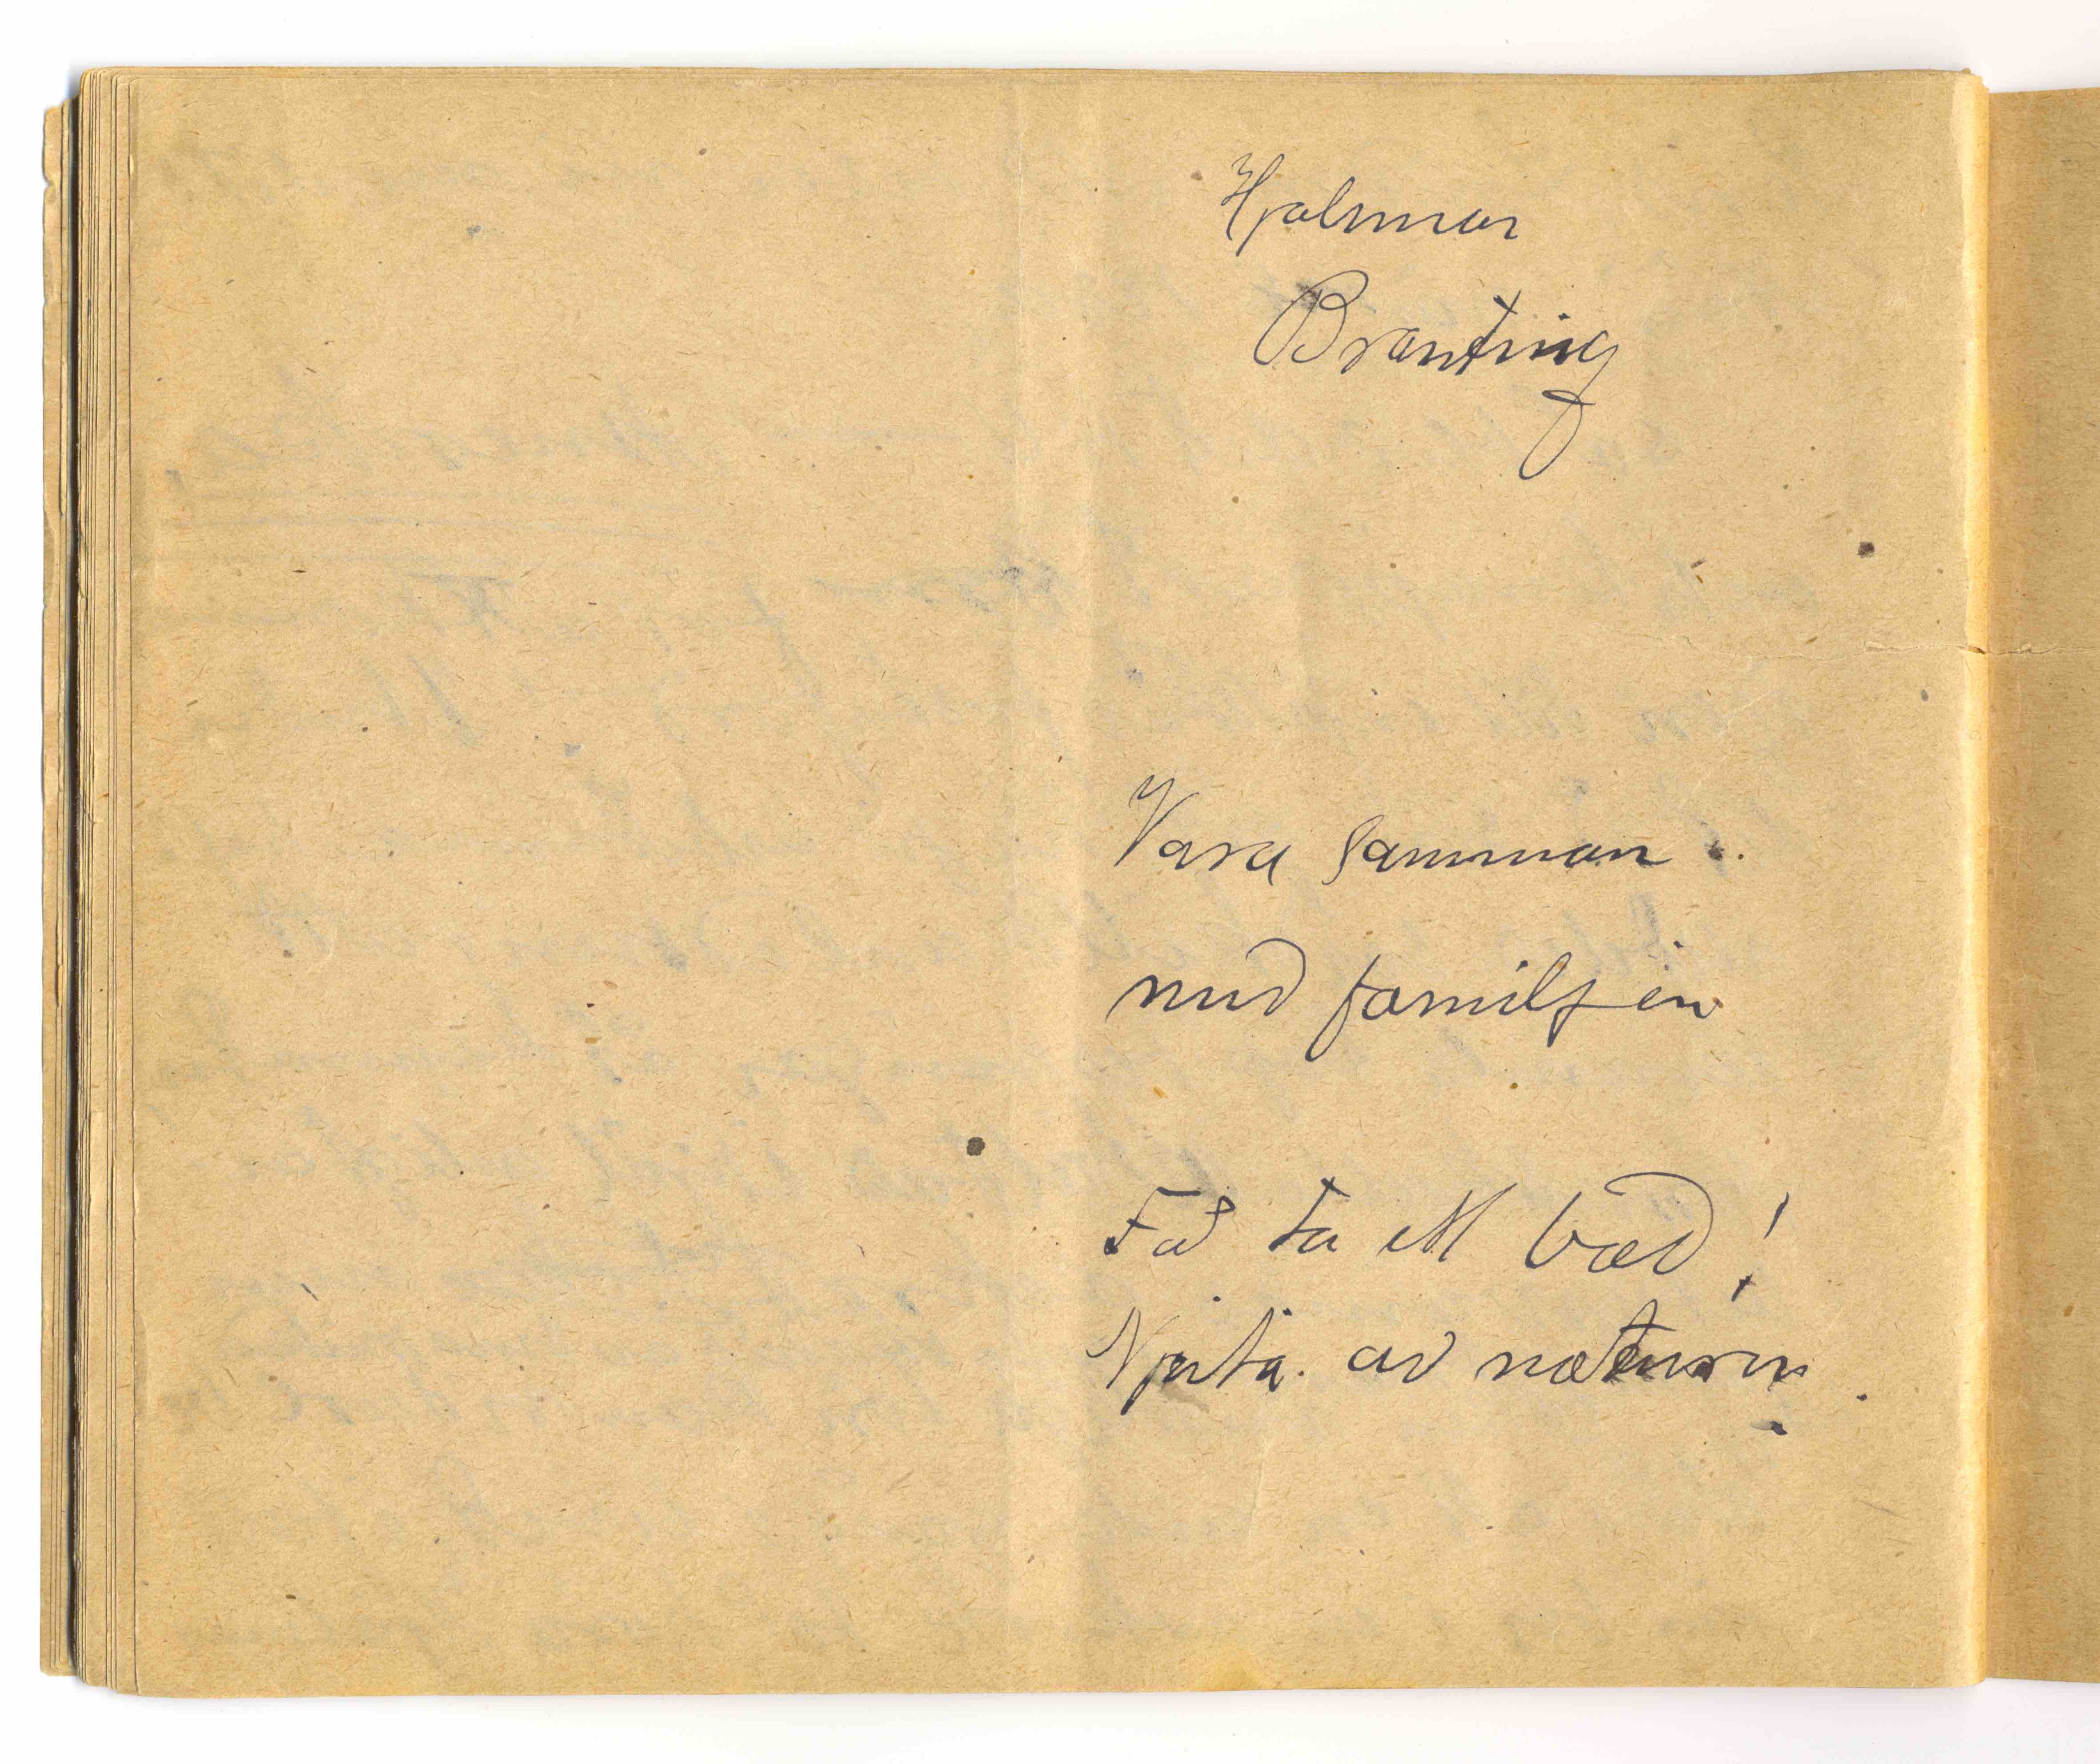 Hjalmar
Branting
Vara samman.
med familjen
Få ta ett bad!
Njuta. av naturen.